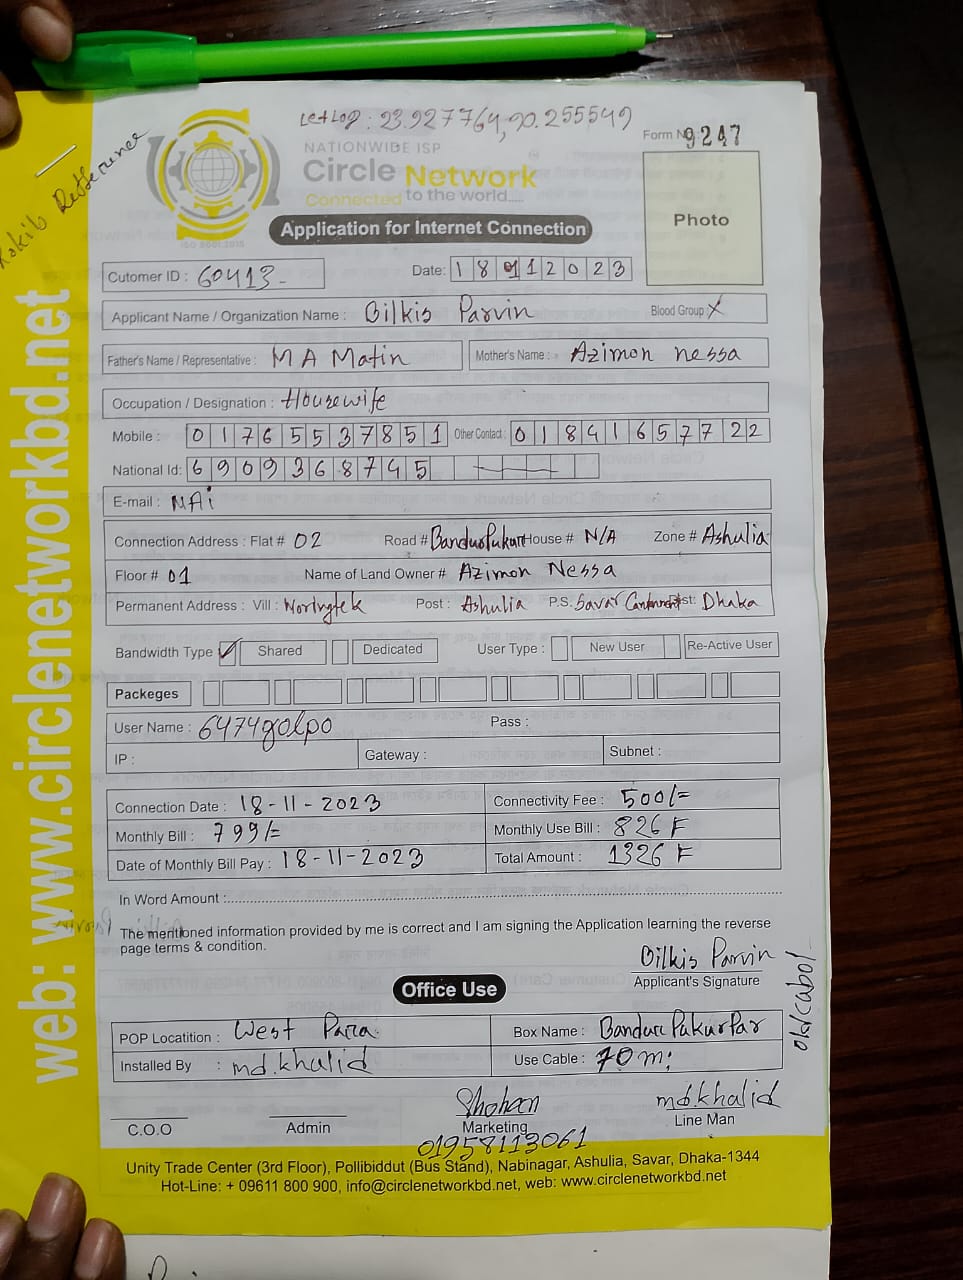 Let Log : 23.927764, 90.255549
Form No 9247
Rakib Refference
NATIONWIDE ISP
Circle Network
Connected to the world.....
ISO 9001:2015
Photo
Application for Internet Connection
Cutomer ID : 60413-
Date: 18112023
Applicant Name / Organization Name : Bilkis Parvin Blood Group : X
Father's Name / Representative : M A Matin Mother's Name : Azimon nessa
Occupation / Designation : Housewife
Mobile : 01765537851 Other Contact : 01841657722
National Id: 6909368745
E-mail : NAi
Connection Address : Flat # 02 Road # BandurPukur House # N/A Zone # Ashulia
Floor # 01 Name of Land Owner # Azimon Nessa
Permanent Address : Vill : Post : Ashulia P.S. Savar Cantonment Dist: Dhaka
Bandwidth Type Shared Dedicated User Type : New User Re-Active User
Packeges
User Name : 6474golpo Pass :
IP : Gateway : Subnet :
Connection Date : 18-11-2023 Connectivity Fee : 500/=
Monthly Bill : 799/= Monthly Use Bill : 826 F
Date of Monthly Bill Pay : 18-11-2023 Total Amount : 1326 F
In Word Amount :
The mentioned information provided by me is correct and I am signing the Application learning the reverse
page terms & condition.
Bilkis Parvin
Applicant's Signature
Office Use
old cabol
POP Locatition : West Para Box Name : Bandur PukurPar
Installed By : md.khalid Use Cable : 70 m;
Shohan md.khalid
C.O.O Admin Marketing Line Man
01958113061
Unity Trade Center (3rd Floor), Pollibiddut (Bus Stand), Nabinagar, Ashulia, Savar, Dhaka-1344
Hot-Line: + 09611 800 900, info@circlenetworkbd.net, web: www.circlenetworkbd.net
web: www.circlenetworkbd.net